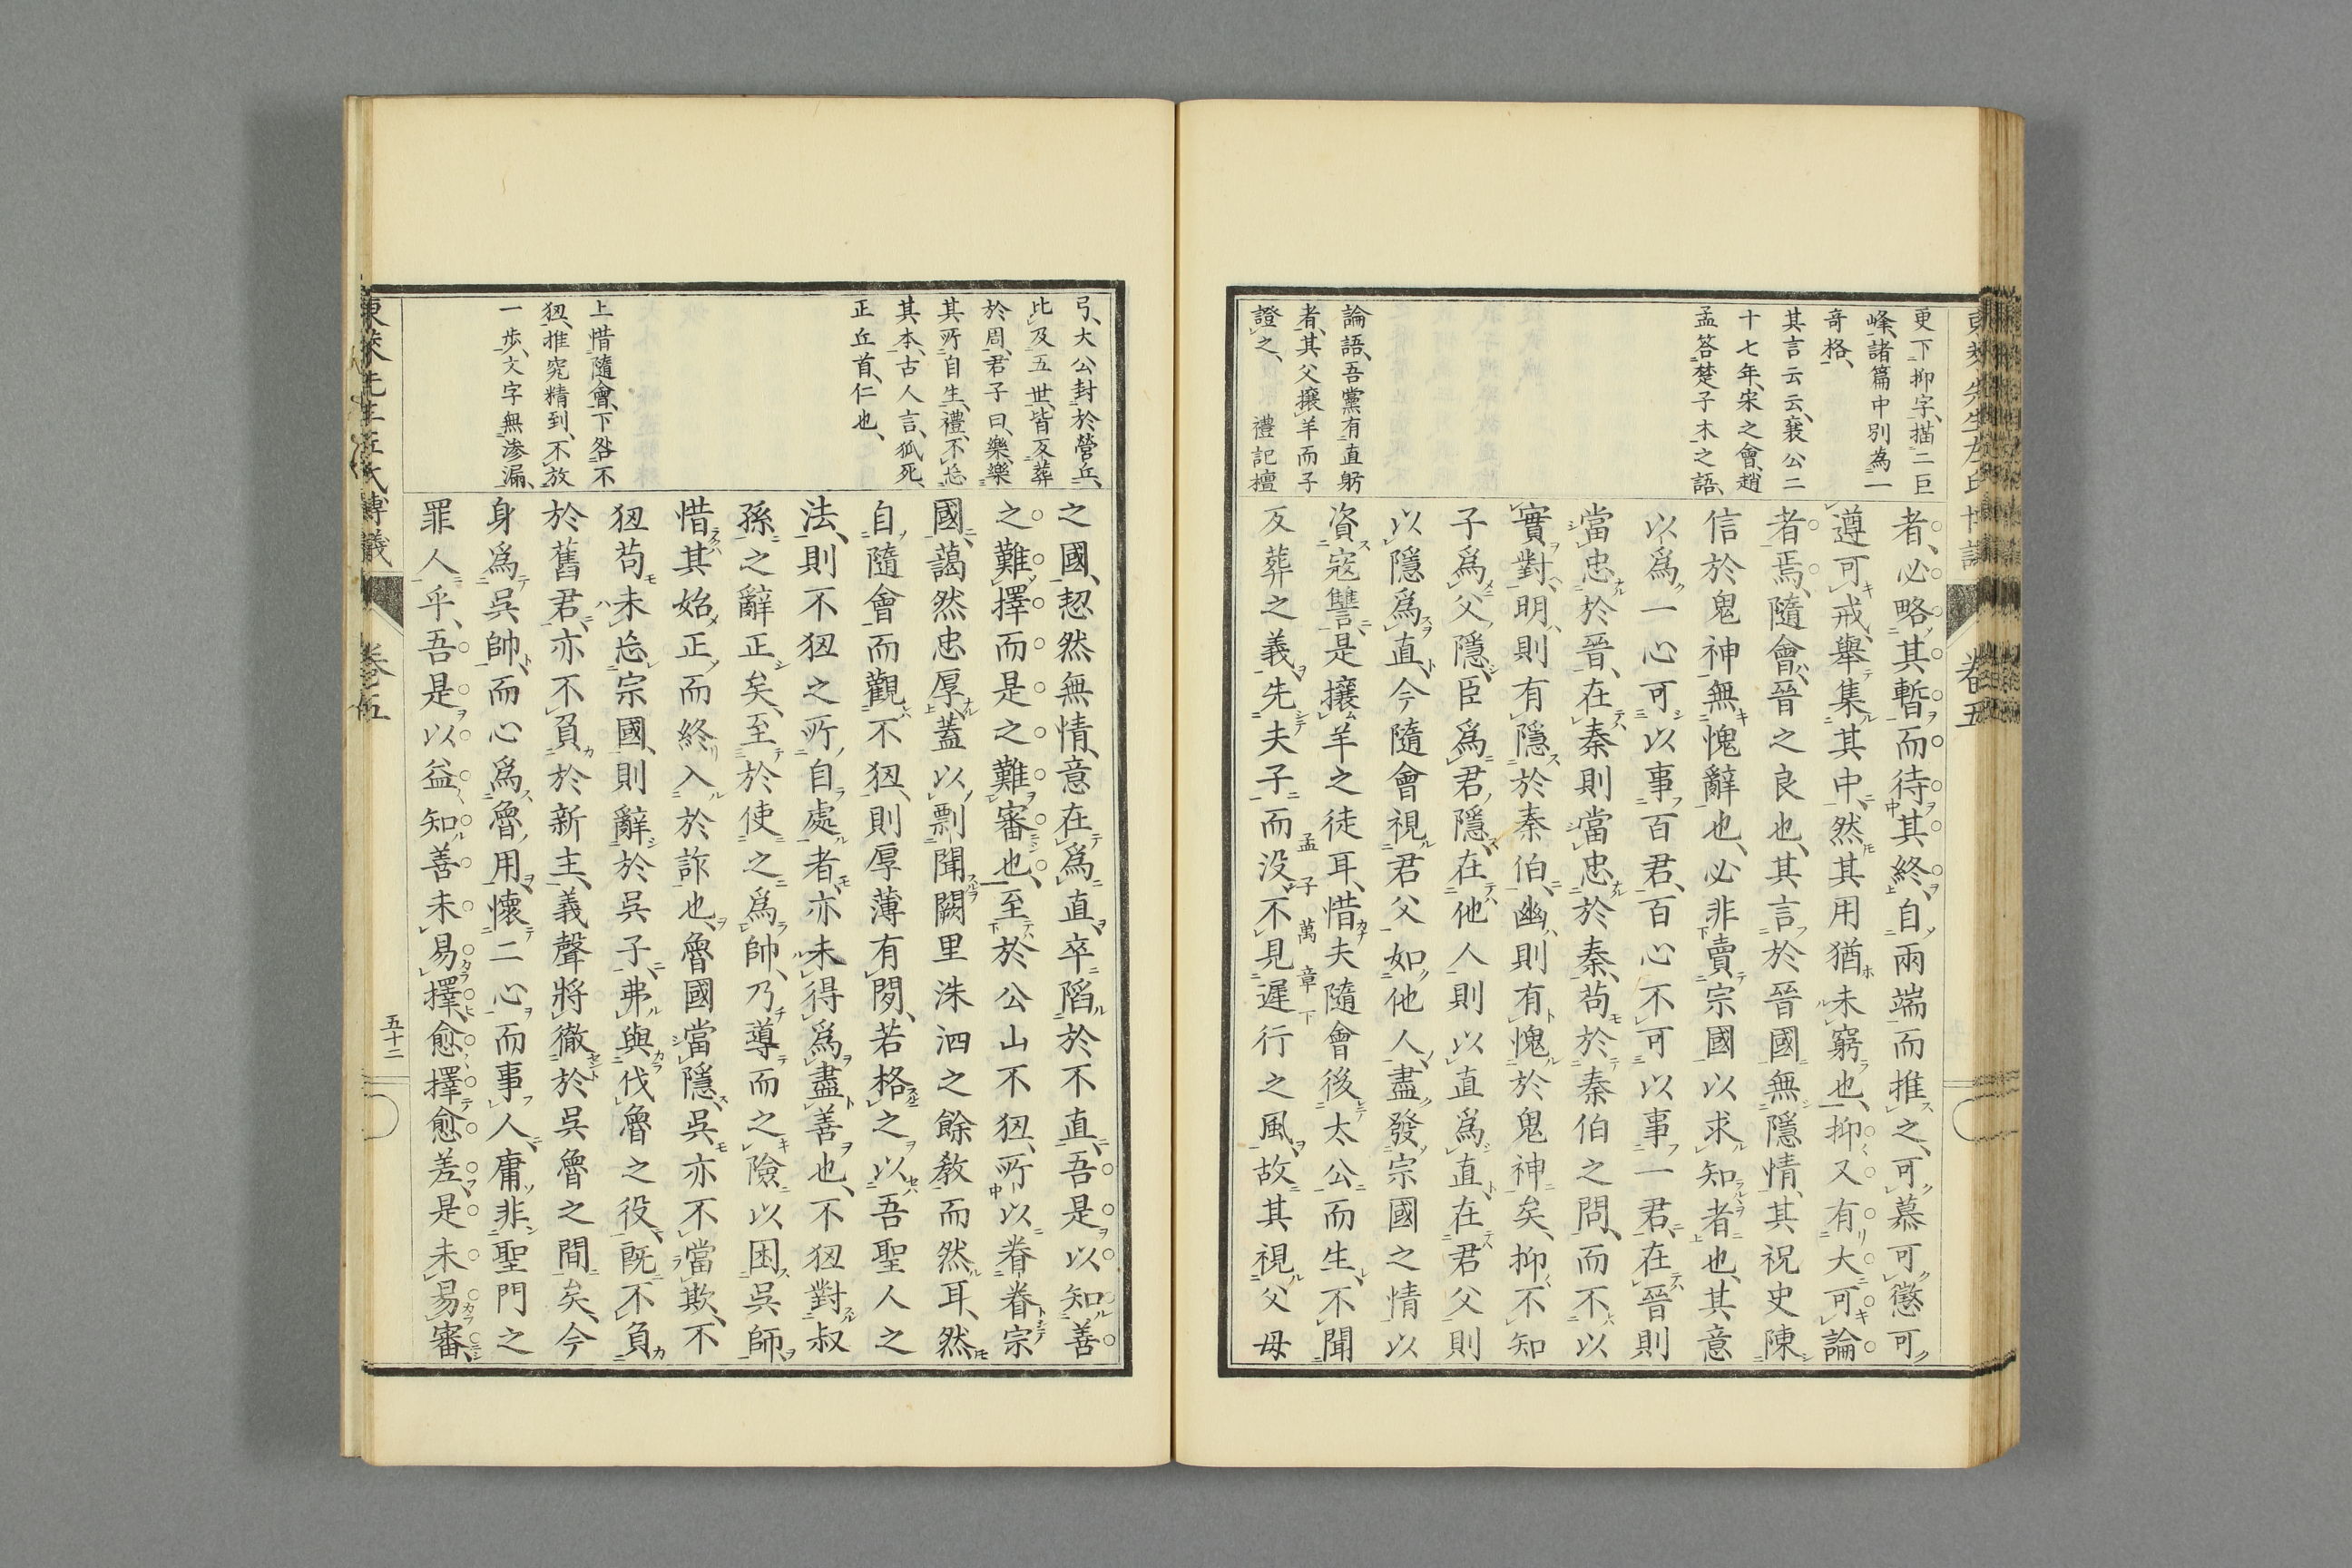 東萊先生左氏博議 卷五
更下抑字、描二巨
峰、諸篇中別為一
奇格、
其言云云、襄公二
十七年、宋之會、趙
孟答楚子木之語、
論語、吾黨有直躬
者、其父攘羊而子
證之、 禮記檀
者、必略其暫而待其終、自兩端而推之、可慕可懲可
遵可戒、擧集其中、然其用猶未窮也、抑又有大可論
者焉、隨會、晉之良也、其言於晉國無隱情、其祝史陳
信於鬼神無愧辭也、必非賣宗國以求知者也、其意
以爲一心可以事百君、百心不可以事一君、在晉則
當忠於晉、在秦則當忠於秦、苟於秦伯之問、而不以
實對、明則有隱於秦伯、幽則有愧於鬼神矣、抑不知
子爲父隱、臣爲君隱、在他人則以直爲直、在君父則
以隱爲直、今隨會視君父如他人、盡發宗國之情以
資寇讐、是攘羊之徒耳、惜夫隨會後太公而生、不聞
孟子萬章下
反葬之義、先夫子而没、不見遲行之風、故其視父母
弓、大公封於營丘、
比及五世、皆反葬
於周、君子曰、樂、樂
其所自生、禮、不忘
其本、古人言、狐死、
正丘首、仁也、
上惜隨會、下咎不
狃、推究精到、不放
一步、文字無滲漏、
之國、恝然無情、意在爲直、卒陷於不直、吾是以知善
之難擇而是之難審也、至於公山不狃、所以眷眷宗
國、藹然忠厚、蓋以剽聞闕里洙泗之餘敎而然耳、然
自隨會而觀不狃、則厚薄有閒、若格之以吾聖人之
法、則不狃之所自處者、亦未得爲盡善也、不狃對叔
孫之辭正矣、至於使之爲帥、乃導而之險以困吳師、
惜其始正而終入於詐也、魯國當隱、吳亦不當欺、不
狃苟未忘宗國、則辭於吳子、弗與伐魯之役、旣不負
於舊君、亦不負於新主、義聲將徹於吳魯之間矣、今
身爲吳帥、而心爲魯用、懷二心而事人、庸非聖門之
罪人乎、吾是以益知善未易擇、愈擇愈差、是未易審、
東萊先生左氏博議 卷五 五十二